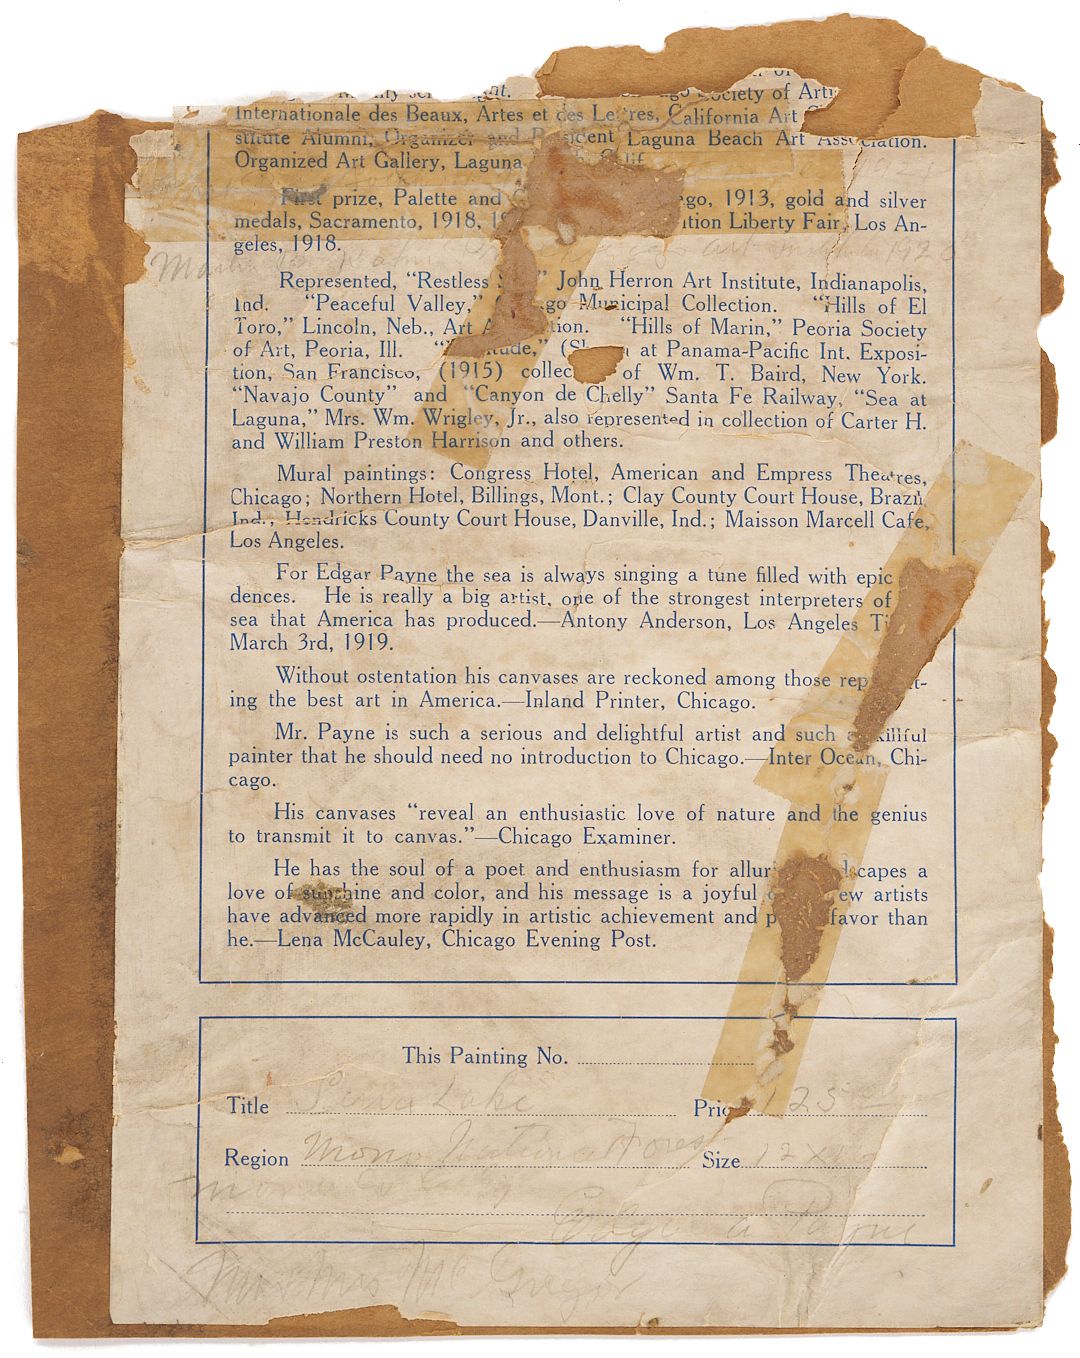 ght. ago Society of Arti
Internationale des Beaux, Artes et des Le res, California Art
stitute Alumni, Organizer and P sident Laguna Beach Art Association.
Organized Art Gallery, Laguna Calif.
First prize, Palette and C ago, 1913, gold and silver
medals, Sacramento, 1918, 19 ition Liberty Fair, Los An-
geles, 1918.
1920
Represented, “Restless S ” John Herron Art Institute, Indianapolis,
Ind. “Peaceful Valley,” C go Municipal Collection. “Hills of El
Toro,” Lincoln, Neb., Art A tion. “Hills of Marin,” Peoria Society
of Art, Peoria, Ill. “ tude,” (S at Panama-Pacific Int. Exposi-
tion, San Francisco, (1915) collec of Wm. T. Baird, New York.
“Navajo County” and “Canyon de Chelly” Santa Fe Railway, “Sea at
Laguna,” Mrs. Wm. Wrigley, Jr., also represented in collection of Carter H.
and William Preston Harrison and others.
Mural paintings: Congress Hotel, American and Empress Theatres,
Chicago; Northern Hotel, Billings, Mont.; Clay County Court House, Brazil,
Ind.; Hendricks County Court House, Danville, Ind.; Maisson Marcell Cafe,
Los Angeles.
For Edgar Payne the sea is always singing a tune filled with epic
dences. He is really a big artist, one of the strongest interpreters of
sea that America has produced.—Antony Anderson, Los Angeles Ti
March 3rd, 1919.
Without ostentation his canvases are reckoned among those rep t-
ing the best art in America.—Inland Printer, Chicago.
Mr. Payne is such a serious and delightful artist and such a killful
painter that he should need no introduction to Chicago.—Inter Ocean, Chi-
cago.
His canvases “reveal an enthusiastic love of nature and the genius
to transmit it to canvas.”—Chicago Examiner.
He has the soul of a poet and enthusiasm for allur dscapes a
love of sunshine and color, and his message is a joyful ew artists
have advanced more rapidly in artistic achievement and p favor than
he.—Lena McCauley, Chicago Evening Post.
This Painting No.
Title Lake Pric 125
Region Mono National Forest Size 12 x
Edgar a Payne
Mr & Mrs Mc Gregor